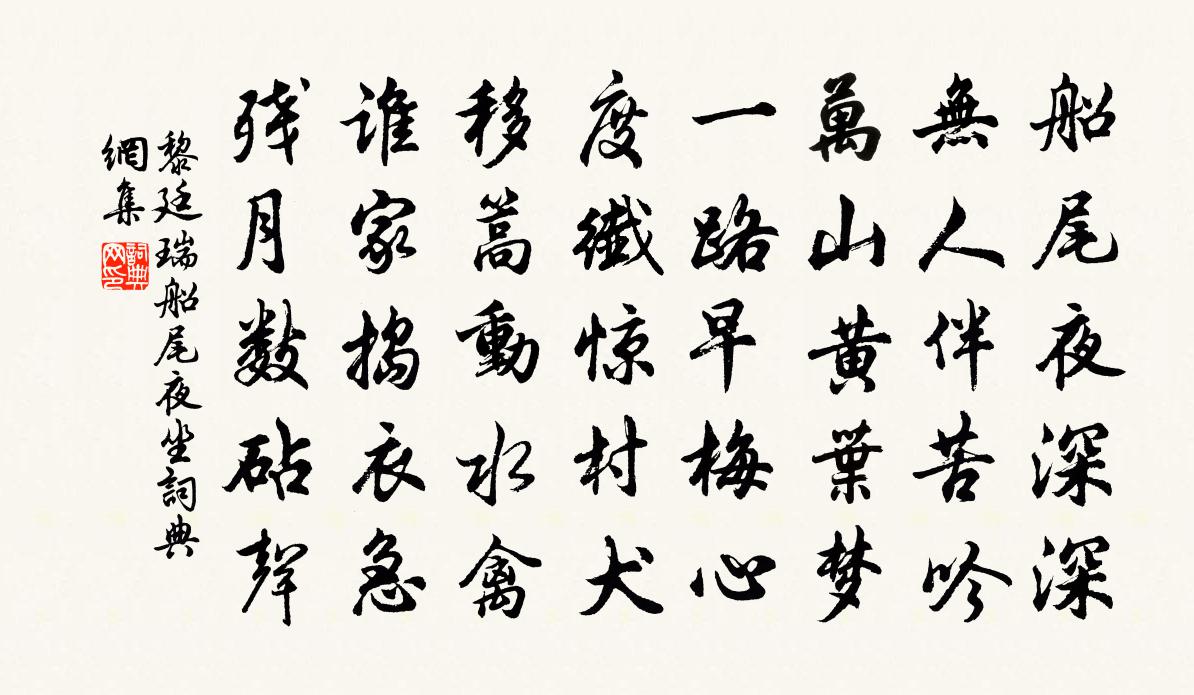 船尾夜深深
無人伴苦吟
萬山黃葉梦
一路早梅心
度纖惊村犬
移篙動水禽
谁家搗衣急
残月数砧聲
黎廷瑞船尾夜坐詞典
網集
詞典
网印